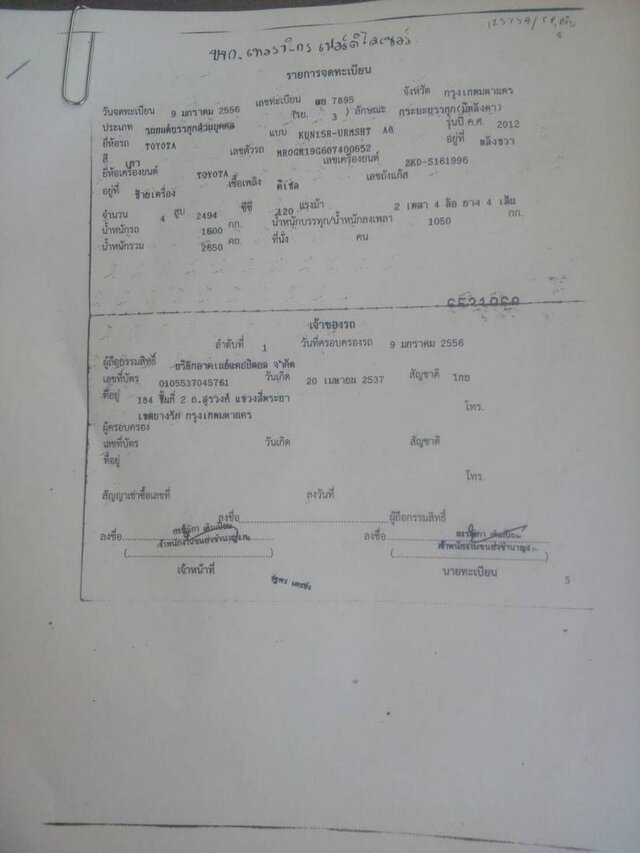 รายการจดทะเบียน
วันจดทะเบียน 9 มกราคม 2556 เลขทะเบียน 7895 จังหวัด กรุงเทพมหานคร
ประเภท รถยนต์บรรทุกส่วนบุคคล (รย. 3 ) ลักษณะ กระบะบรรทุก(มีหลังคา)
ยี่ห้อรถ TOYOTA แบบ KUN15R-URMSHT A8 รุ่นปี ค.ศ. 2012
สี เทา เลขตัวรถ MR0GR19G607400552 อยู่ที่ หลังขวา
ยี่ห้อเครื่องยนต์ TOYOTA เลขเครื่องยนต์ 2KD-S161996
อยู่ที่ ซ้ายเครื่อง เชื้อเพลิง ดีเซล เลขถังแก๊ส
จำนวน 4 สูบ 2494 ซีซี 120 แรงม้า 2 เพลา 4 ล้อ ยาง 4 เส้น
น้ำหนักรถ 1600 กก. น้ำหนักบรรทุก/น้ำหนักลงเพลา 1050 กก.
น้ำหนักรวม 2650 กก. ที่นั่ง คน
เจ้าของรถ
ลำดับที่ 1 วันที่ครอบครองรถ 9 มกราคม 2556
ผู้ถือกรรมสิทธิ์ จำกัด
เลขที่บัตร 0105537045761 วันเกิด 20 เมษายน 2537 สัญชาติ ไทย
ที่อยู่ 184 ชั้นที่ 2 ถ.สุรวงศ์ แขวงสี่พระยา โทร.
เขตบางรัก กรุงเทพมหานคร
ผู้ครอบครอง
เลขที่บัตร วันเกิด สัญชาติ
ที่อยู่
โทร.
สัญญาเช่าซื้อเลขที่ ลงวันที่
ลงชื่อ ผู้ถือกรรมสิทธิ์
ลงชื่อ ลงชื่อ
เจ้าพนักงานขนส่งชำนาญงาน เจ้าพนักงานขนส่งชำนาญงาน
เจ้าหน้าที่ นายทะเบียน
5